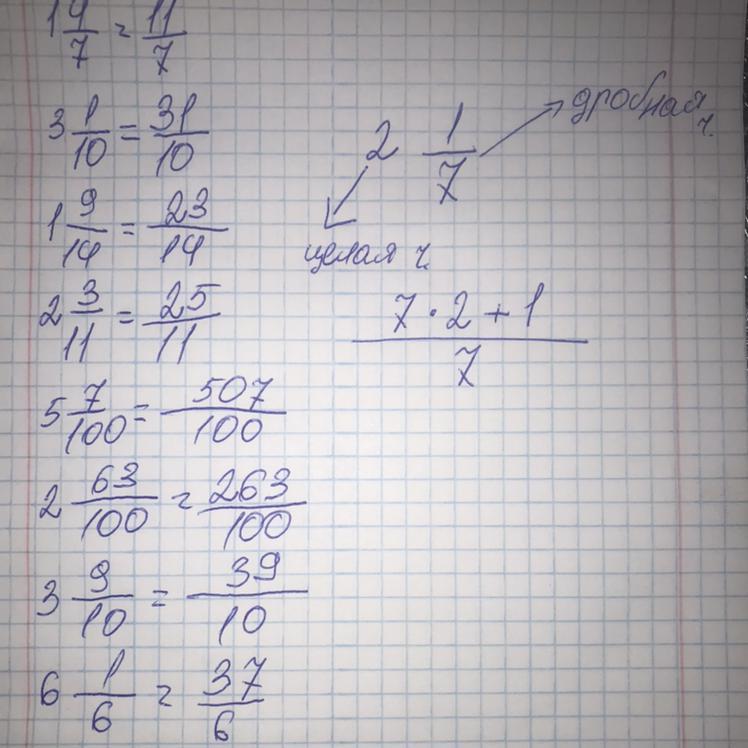 1 4/7 = 11/7
3 1/10 = 31/10
1 9/14 = 23/14
2 3/11 = 25/11
5 7/100 = 507/100
2 63/100 = 263/100
3 9/10 = 39/10
6 1/6 = 37/6
2 1/7
дробная ч.
целая ч.
7 · 2 + 1
7